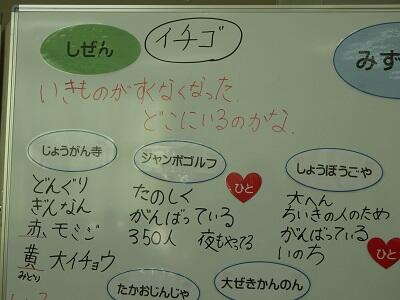 しぜん
イチゴ
みず
いきものがすくなくなった.
どこにいるのかな.
じょうがん寺
どんぐり
ぎんなん
赤モミジ
黄大イチョウ
みどり
ジャンボゴルフ
ひと
たのしく
がんばっている
350人 夜もやってる
しょうぼうごや
大へん
ちいきの人のため
がんばっている
いのち
ひと
たかおじんじゃ
大ぜきかんのん